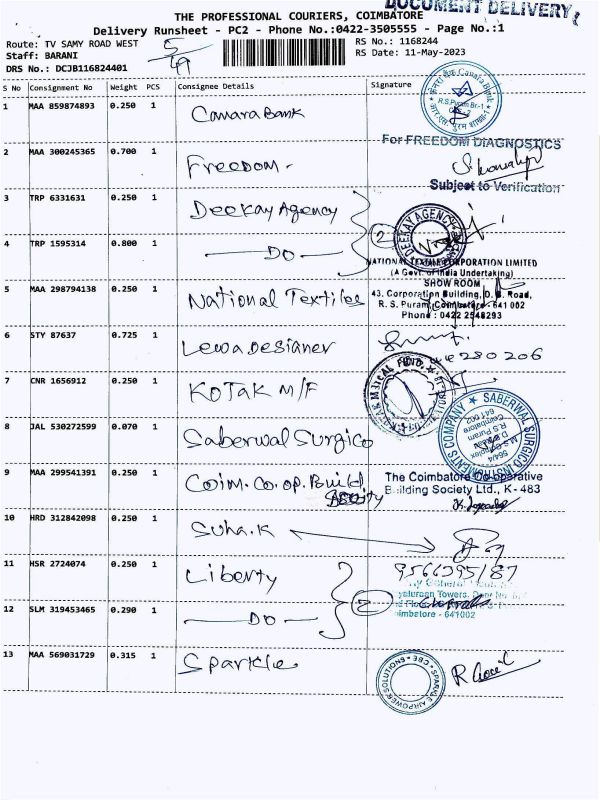 DOCUMENT DELIVERY
THE PROFESSIONAL COURIERS, COIMBATORE
Delivery Runsheet - PC2 - Phone No.:0422-3505555 - Page No.:1
Route: TV SAMY ROAD WEST
RS No.: 1168244
Staff: BARANI
RS Date: 11-May-2023
DRS No.: DCJB116824401
5/49
S No Consignment No Weight PCS Consignee Details Signature
1 MAA 859874893 0.250 1 Canara Bank
Canara Bank
R.S.Puram Br.-1
For FREEDOM DIAGNOSTICS
2 MAA 300245365 0.700 1 Freedom -
Subject to Verification
3 TRP 6331631 0.250 1 Deekay Agency
2
DEEKAY AGENCY
4 TRP 1595314 0.800 1 DO
NATIONAL TEXTILE CORPORATION LIMITED
(A Govt. of India Undertaking)
SHOW ROOM
5 MAA 298794138 0.250 1 National Textiles
43, Corporation Building, D. B. Road,
R. S. Puram, Coimbatore - 641 002
Phone : 0422 2548293
6 STY 87637 0.725 1 Lewa Designer
7 CNR 1656912 0.250 1 KOTAK M/F
8 JAL 530272599 0.070 1 Saberwal Surgico
SABERWAL SURGICO INSTRUMENTS COMPANY
564/4
R.S Puram
Coimbatore
641 002
9 MAA 299541391 0.250 1 Coim. Co. op. Build
The Coimbatore Co-operative
Building Society Ltd., K - 483
10 HRD 312842098 0.250 1 Suha.K
11 HSR 2724074 0.250 1 Liberty
9566395187
12 SLM 319453465 0.290 1 DO
2
Coimbatore - 641002
13 MAA 569031729 0.315 1 Sparkle
SPARKLE AIRPOWER SOLUTIONS CBE